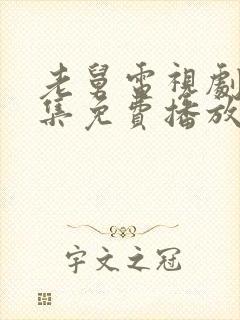 老舅電視劇
集免費播放
宇文之冠